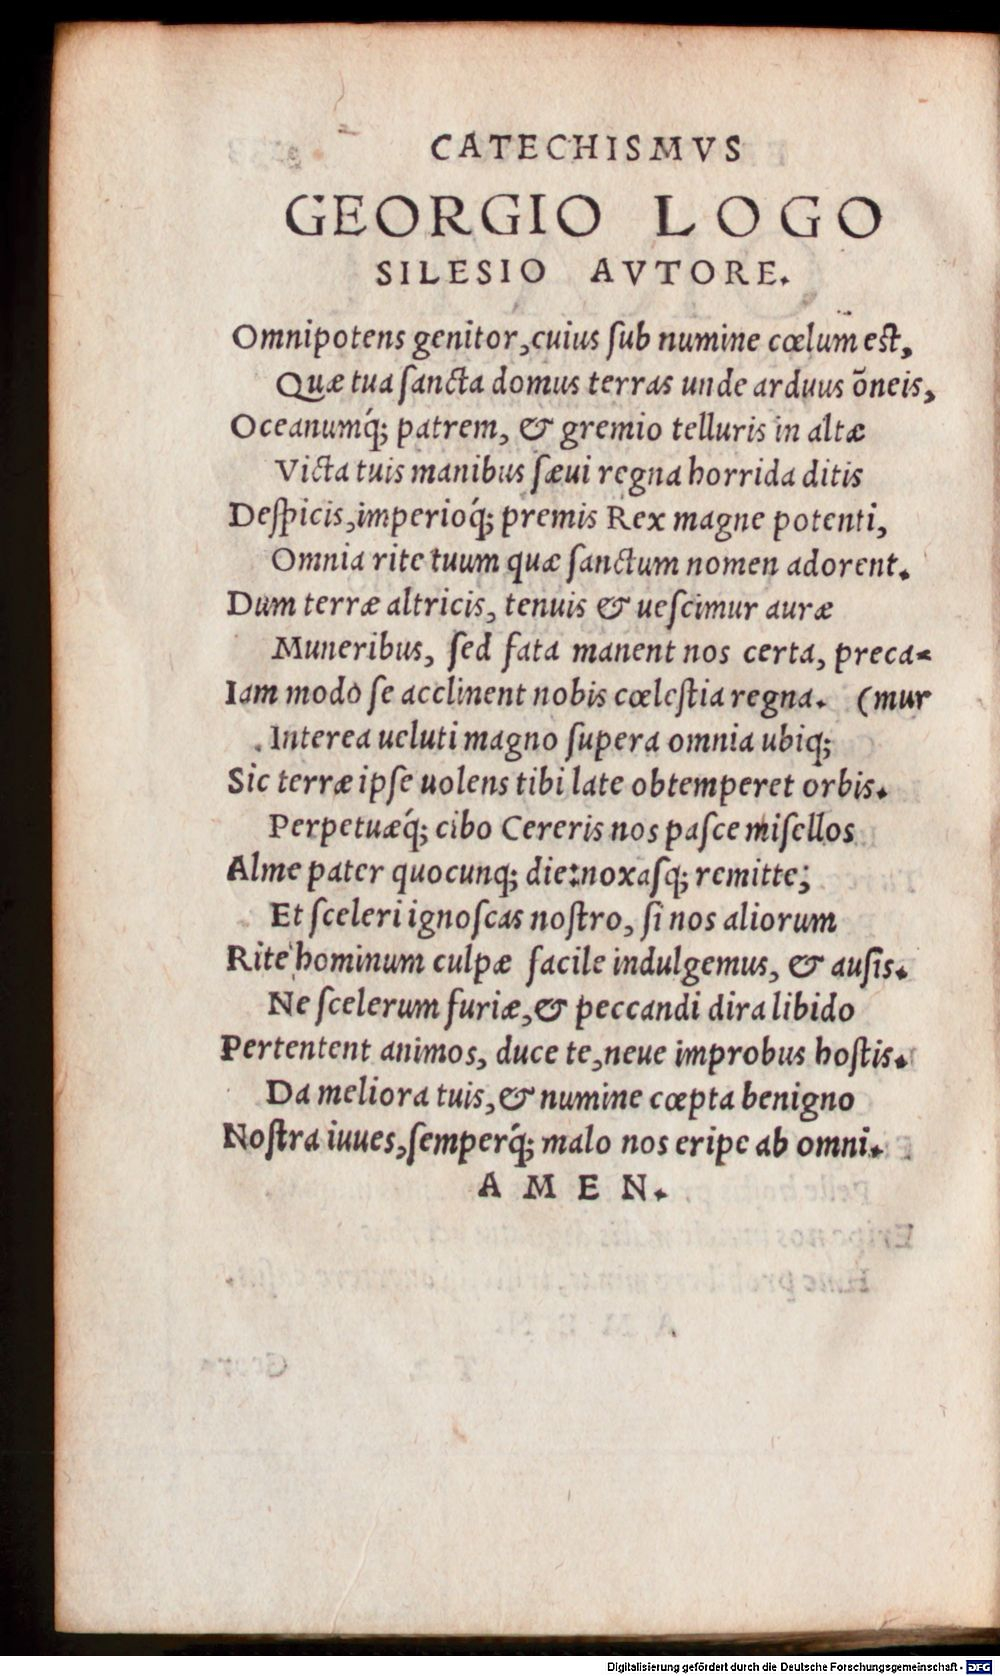 CATECHISMVS
GEORGIO LOGO
SILESIO AVTORE.
Omnipotens genitor, cuius ſub numine cœlum est,
Quæ tua ſancta domus terras unde arduus õneis,
Oceanumq́; patrem, & gremio telluris in altæ
Victa tuis manibus ſæui regna horrida ditis
Deſpicis, imperioq́; premis Rex magne potenti,
Omnia rite tuum quæ ſanctum nomen adorent.
Dum terræ altricis, tenuis & ueſcimur auræ
Muneribus, ſed fata manent nos certa, preca-
Iam modo ſe acclinent nobis cœleſtia regna. (mur
Interea ueluti magno ſupera omnia ubiq;
Sic terræ ipſe uolens tibi late obtemperet orbis.
Perpetuæq́; cibo Cereris nos paſce miſellos
Alme pater quocunq; die: noxaſq; remitte;
Et ſceleri ignoſcas noſtro, ſi nos aliorum
Rite hominum culpæ facile indulgemus, & auſis.
Ne ſcelerum furiæ, & peccandi dira libido
Pertentent animos, duce te, neue improbus hoſtis.
Da meliora tuis, & numine cœpta benigno
Noſtra iuues, ſemperq́; malo nos eripe ab omni.
AMEN.
Digitalisierung gefördert durch die Deutsche Forschungsgemeinschaft - DFG